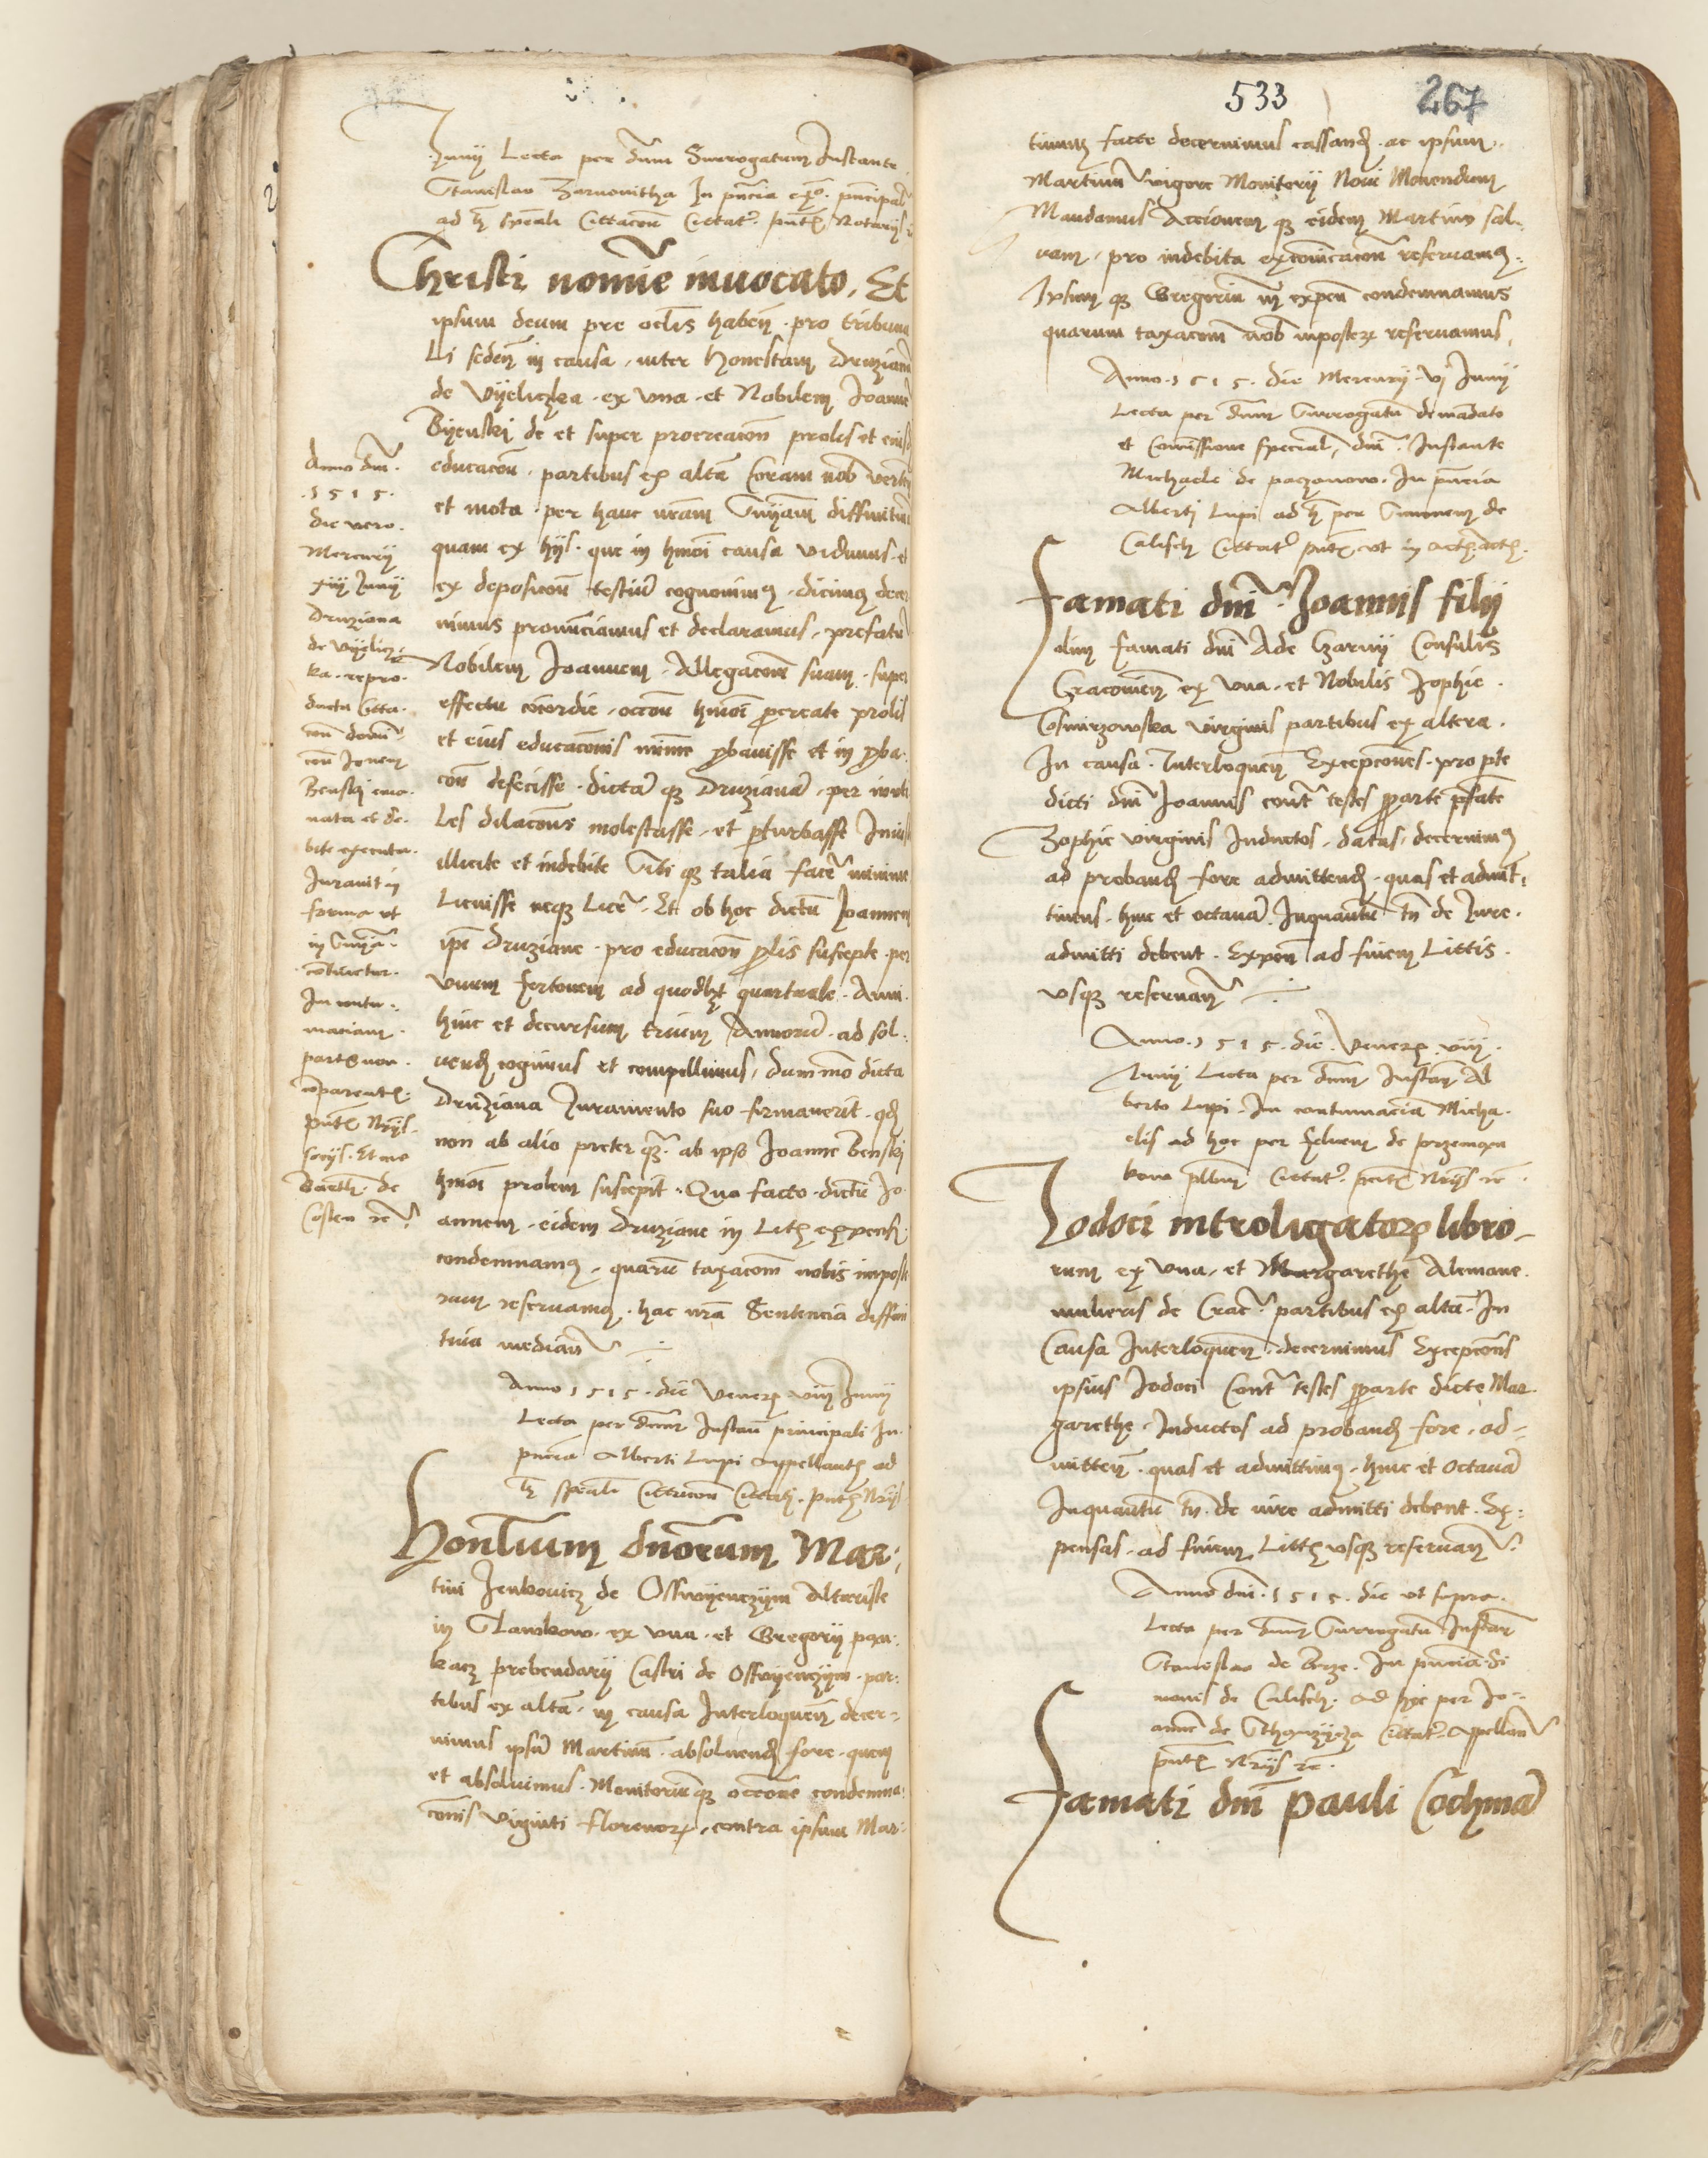 Junij Lecta per dnm Surrogatum Instante
Stanislao Zarnouitha In pncia principal
ad h speciali Cittacom Cittat pntes Notarijs
Christi nomine inuocato. Et
ipsum deum pre oclis haben pro tribuna
li seden in causa inter Honestam Druzianam
de Vyeliczka ex vna et Nobilem Joannem
Byenski de et super procreacon prolis et eius
educacon partibus ex altera Coram nob verten
et mota per hanc nram Snyam diffinitiua
quam ex hijs que in hmoi causa vidimus et
ex deposicon testium cognouimus dicimus decer
nimus pronunciamus et declaramus prefatum
Nobilem Joannem Allegacom suam super
effectu concordie occon hmoi procreate prolis
et eius educaconis minime probauisse et in proba
con defecisse dictam que Druzianam per inuti
les dilacons molestasse et perturbasse Inius
illicite et indebite Sibi que talia facere minime
Licuisse neque Licere Et ob hoc dictum Joannem
ipi Druziane pro educacon prolis suscepte per
vnum fertonem ad quodlibet quartuale Anni
hinc et decursum trium Annorum ad sol
uend cogimus et compellimus dummodo dicta
Druziana Juramento suo firmauerit quod
non ab alio preter quam ab ipso Joanne Benski
hmoi prolem suscepit Quo facto dictum Jo
annem eidem Druziane in Litis expensis
condemnamus quarum taxacom nobis imposte
rum reseruamus hac nra Sentencia diffini
tiua median
Anno dni
1515
die vero
Mercurij
xiij Junij
Druziana
de Vyelicz
ka repro
ducta Citta
con
con Joannem
Benski ema
nata et de
bite executa
Jurauit in
forma vt
in Snya
continetur
In contu
maciam
partis non
comparentis
pntes Nrijs
socijs Et me
de
Costen
Anno 1515 die Veneris viij Junij
Lecta per dnm Instan principali In
pncia Alberti Lupi Appellantis ad
h speciali Cittacom Cittati pntes Nrijs
Honlium dnorum Mar
tini Jenkouicz de Osswyenczym Altariste
in Slawkow ex vna et Gregorij
kacz prebendarij Castri de Osswyenczym par
tibus ex altera in causa Interloquen decer
nimus ipsum Martinum absoluend fore quem
et absoluimus Monitoriumque occone condemna
conis viginti florenorum contra ipsum Mar
533 267
tinum facte decernimus cassand ac ipsum
Martinum vigore Monitorij Noui Monendum
Mandamus Accionem que eidem Martino sal
uam pro indebita excomicacon reseruamus
Ipsum que Gregorium in expen condemnamus
quarum taxacom nob inposterum reseruamus
Anno 1515 die Mercurij vj Junij
Lecta per dnm Surrogatum de mandato
et Comissione speciali dni Instante
Michaele de paczanow In pncia
Alberti Lupi ad h per Simonem de
Calisch Cittat pntes vt in actis
Famati dni Joannis filij
olim famati dni Ade Czarny Consulis
Cracouien ex vna et Nobilis Zophie
Cosmirzowska virginis partibus ex altera
In causa Interloquen Excepcones pro parte
dicti dni Joannis contra testes pro parte prefate
Zophie virginis Inductos datas decernimus
ad proband fore admittend quas et admit
timus hinc et octauam Inquantum tn de Jure
admitti debent Expen ad finem Littis
vsque reseruan
Anno 1515 die Veneris viij
Junij Lecta per dnm Instan Al
berto Lupi In contumaciam Micha
elis ad hoc per Heluem de
plbnum Cittat pntes Nrijs rc
Jodoci introligatoris libro
rum ex vna et Margarethe Alemane
mulieris de Crac partibus ex altera In
Causa Interloquen decernimus Excepcons
ipsius Jodoci Contra testes pro parte dicte Mar
garethe Inductos ad proband fore ad
mitten quas et admittimus hinc et octauam
Inquantum tn de iure admitti debent Ex
pensas ad finem Littis vsque reseruan
Anno dni 1515 die vt supra
Lecta per dnm Surrogatum Instan
Stanislao de Brze In pnciam Si
monis de Calisch ad hoc per Jo
annem de Cittat Appellan
pntes Nrijs rc
Famati dni Pauli Cochman